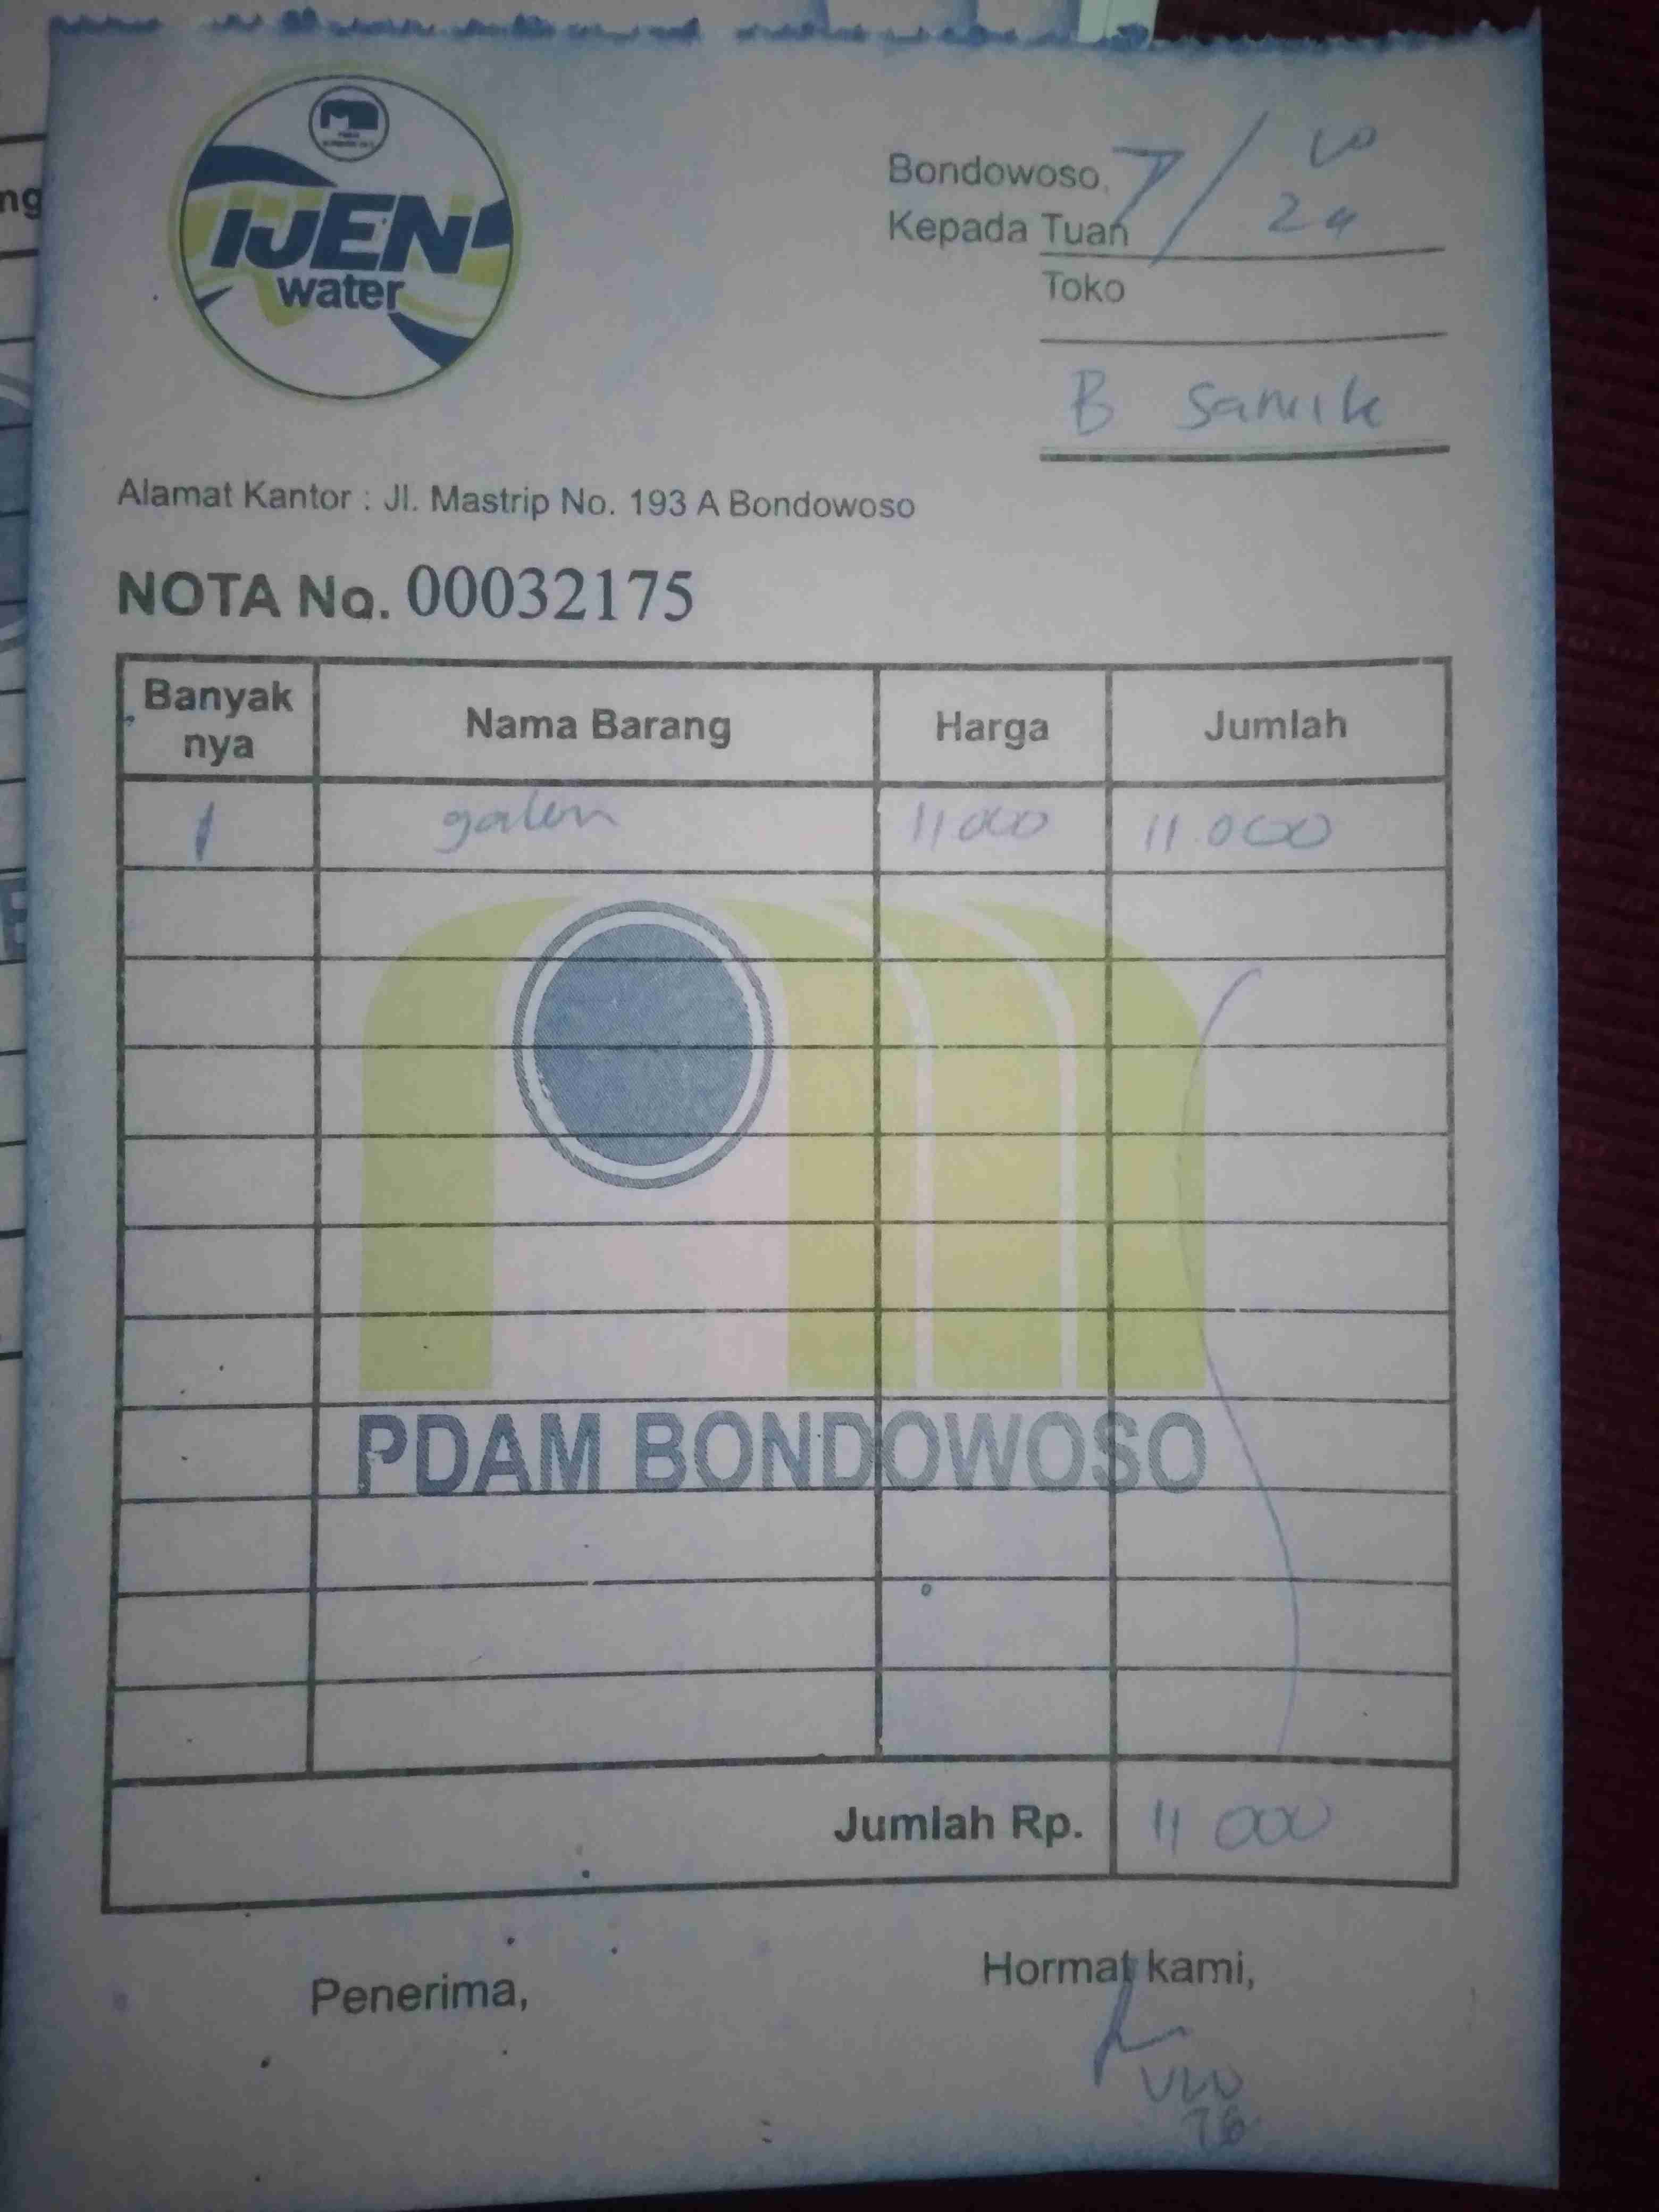 IJEN
water
Bondowoso, 7/10
24
Kepada Tuan
Toko
B Samik
Alamat Kantor : Jl. Mastrip No. 193 A Bondowoso
NOTA No. 00032175
Banyak nya Nama Barang Harga Jumlah
1 galon 11000 11.000
PDAM BONDOWOSO
Jumlah Rp. 11 000
Penerima, Hormat kami,